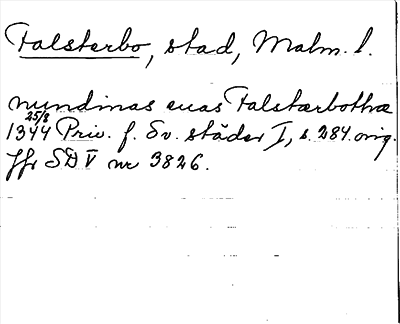 Falsterbo, stad, Malm. l.
nundinas suas Falstærbothæ
25/8
1344 Priv. f. Sv. städer I, s. 284. orig.
Jfr SD V nr 3826.